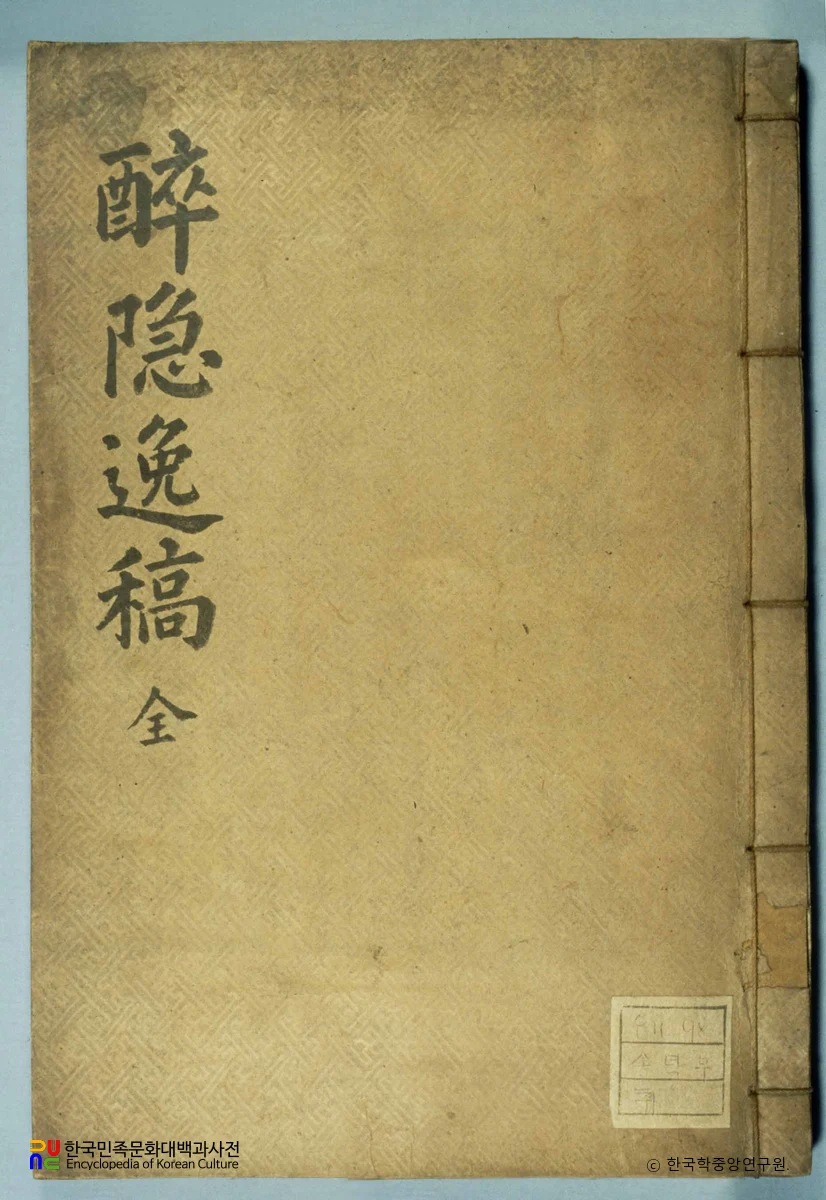 醉隐逸稿 全
한국민족문화대백과사전
Encyclopedia of Korean Culture
© 한국학중앙연구원